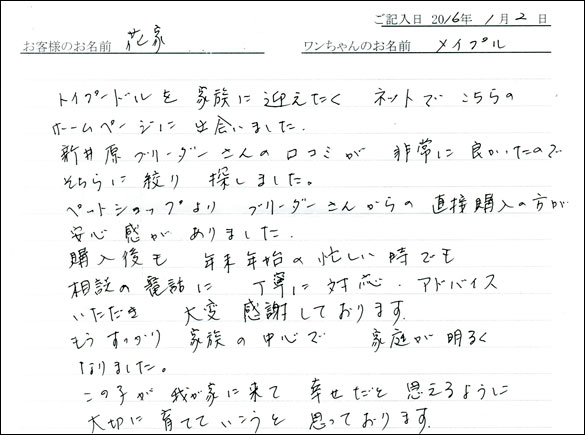 ご記入日 2016年 1月 2日
お客様のお名前 花家 ワンちゃんのお名前 メイプル
トイプードルを 家族に 迎えたく ネットで こちらの
ホームページに 出会いました.
新井原ブリーダーさんの口コミが 非常に 良かったので
そちらに 絞り 探しました。
ペットショップより ブリーダーさんからの 直接購入の方が
安心感が ありました.
購入後も 年末年始の 忙しい時でも
相談の電話に 丁寧に 対応・アドバイス
いただき 大変 感謝しております.
もう すっかり 家族の中心で 家庭が 明るく
なりました。
この子が 我が家に来て 幸せだと 思えるように
大切に 育てていこうと 思っております.